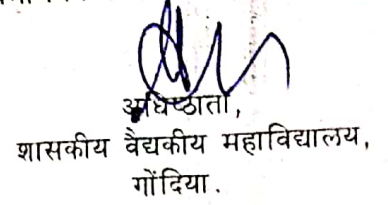 अधिष्ठाता,
शासकीय वैद्यकीय महाविद्यालय,
गोंदिया.